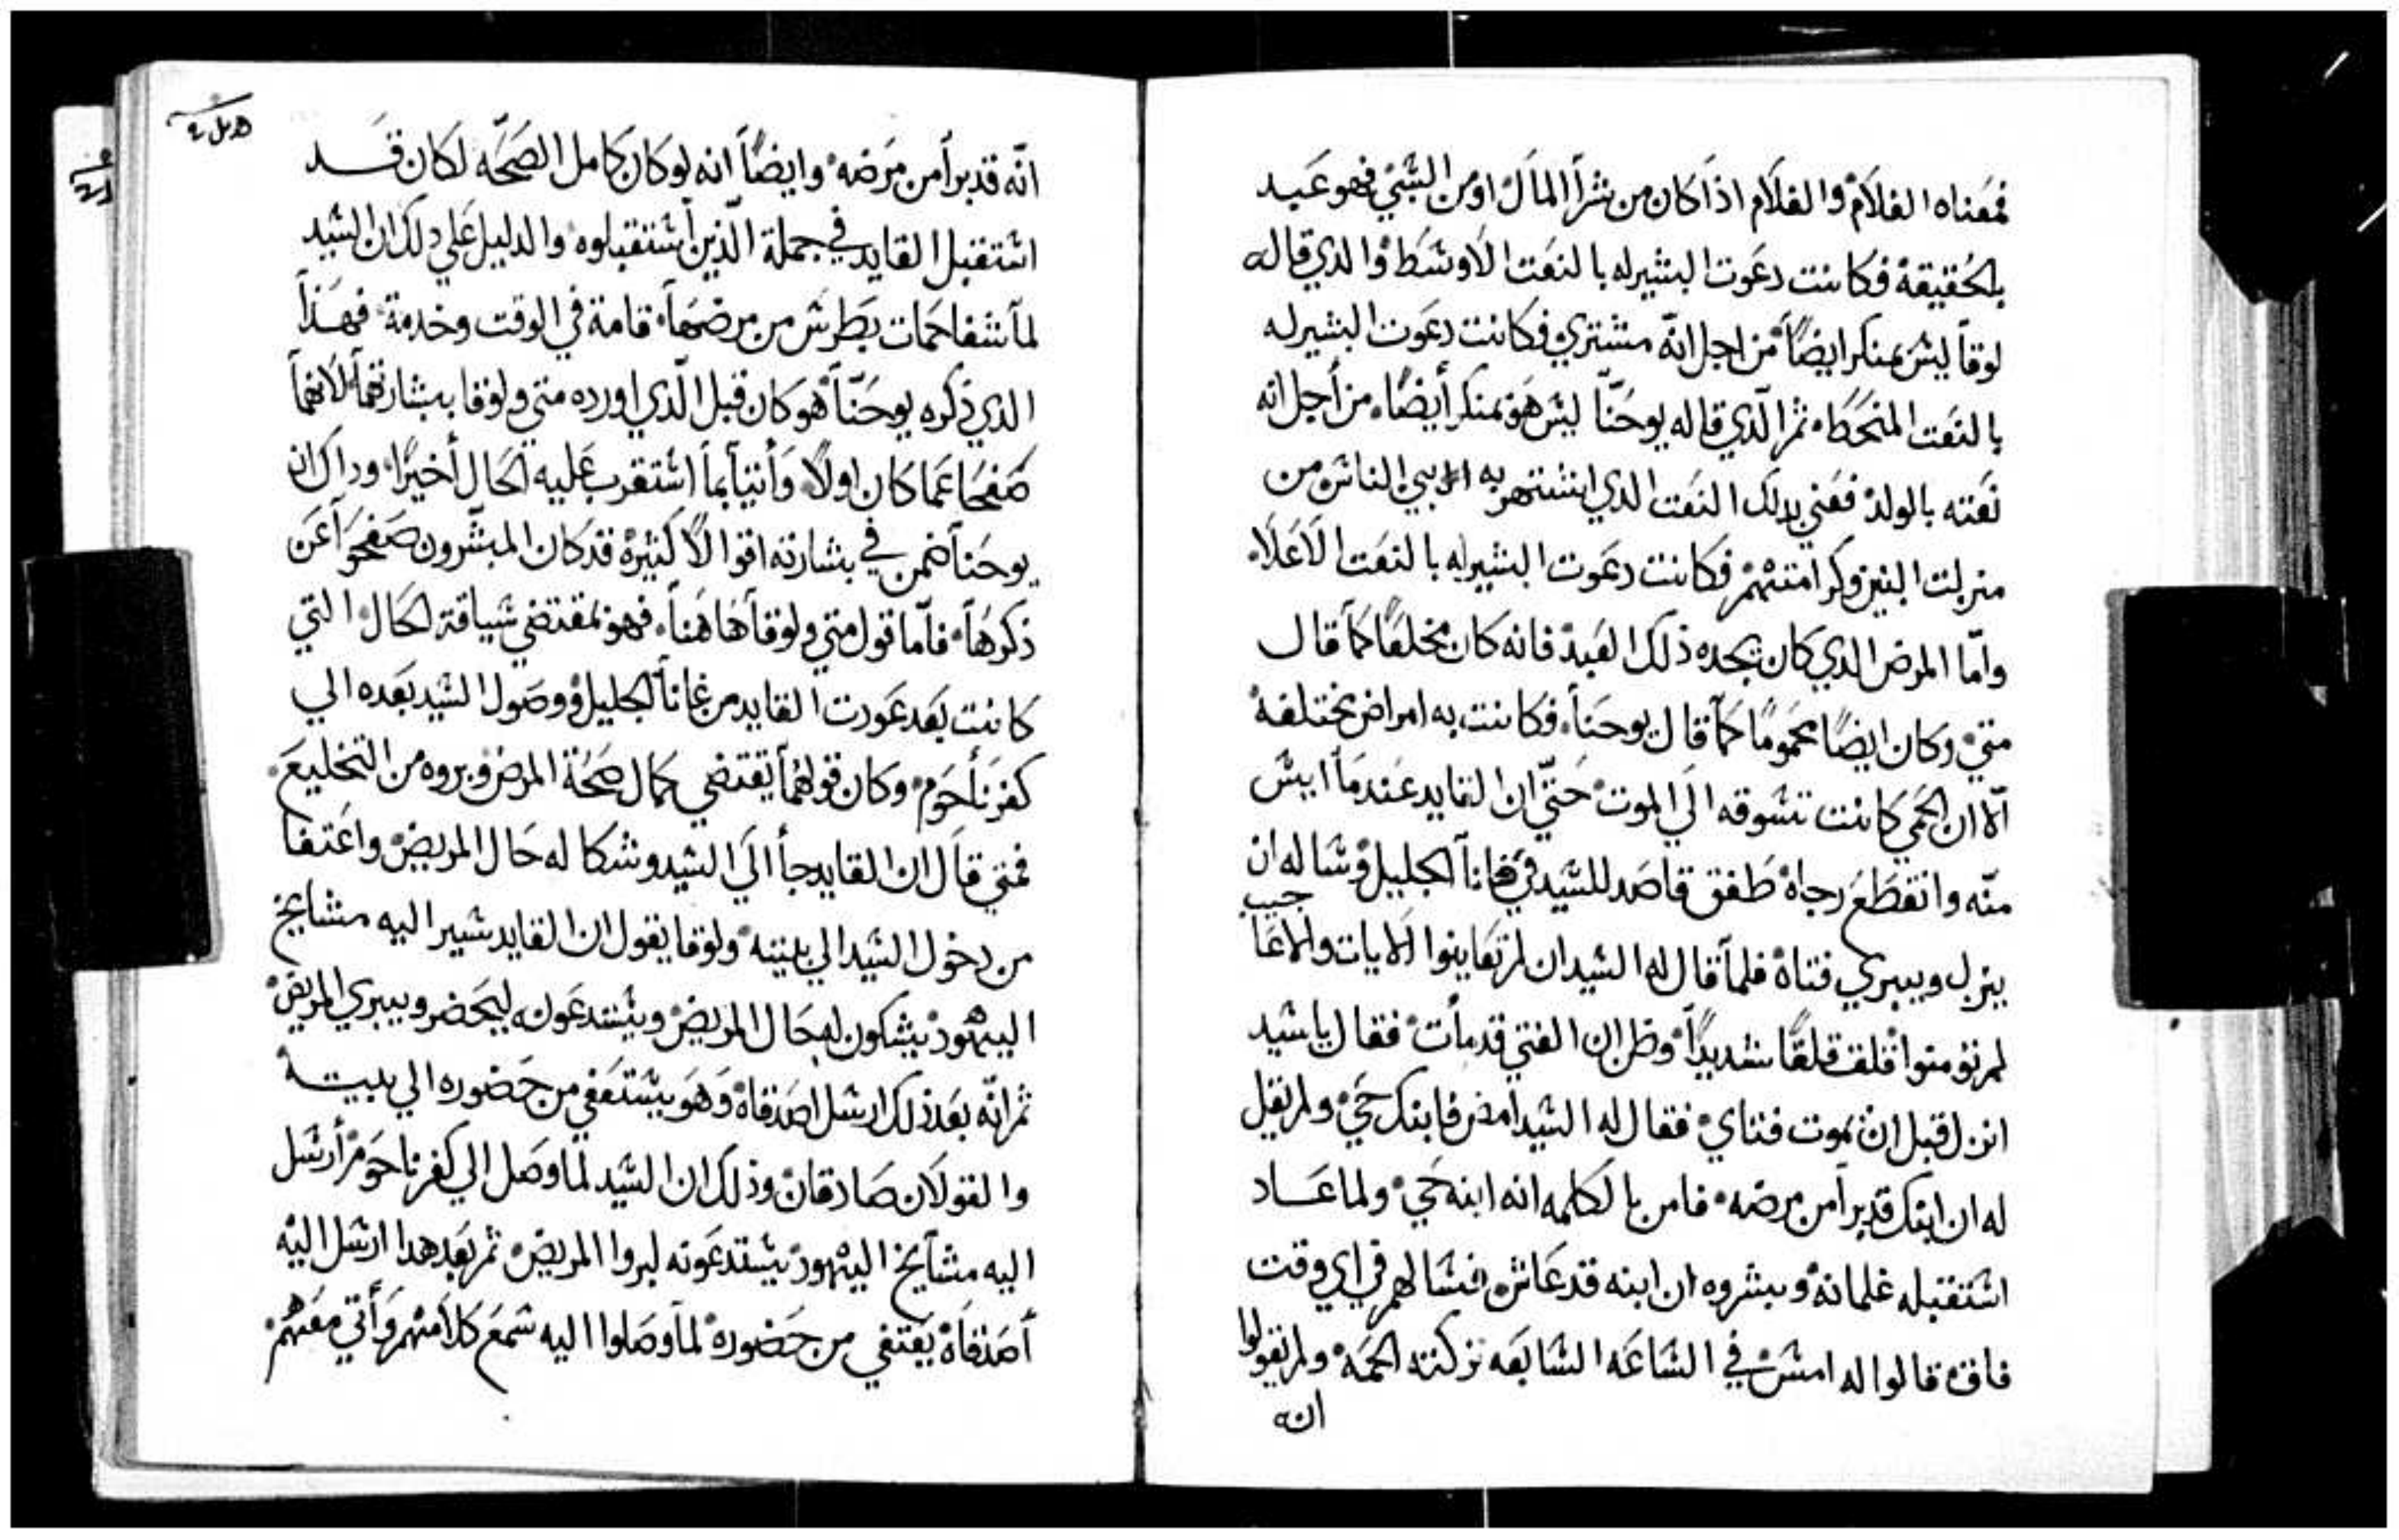 فمعناه الغلام والغلام اذا كان من شرا المال او من السبي فهو عبد
بالحقيقة فكانت دعوت البشير له بالنعت الاوسط والدي قاله
لوقا ليس بمنكر ايضاً من اجل انه مشتري فكانت دعوت البشير له
بالنعت المنحط ثم الذي قاله يوحنا ليس هو بمنكر أيضاً من أجل انه
نعته بالولد فعني بدلك النعت الدي اشتهر به بين الناس من
منزلت البنين وكرامتهم فكانت دعوت البشير له بالنعت الاعلا
وامّا المرض الدي كان يجده ذلك العبد فانه كان مخلعاً كما قال
متي وكان ايضاً محموماً كما قال يوحنا فكانت به امراض مختلفة
الّا ان الحمي كانت تسوقه الي الموت حتّي ان القايد عندما ايس
منّه وانقطع رجاه طفق قاصد للسيد في قانا الجليل وساله ان
ينزل ويبري فتاه فلما قال له السيد ان لم تعاينوا الايات والاعاجيب
لم تومنوا قلق قلقاً شديداً وظن ان الفتي قد مات فقال يا سيد
انزل قبل ان يموت فتاي فقال له السيد امض فابنك حي ولم يقل
له ان ابنك قد برا من مرضه فامن بالكلمه انه ابنه حي ولما عاد
استقبله غلمانه وبشروه ان ابنه قد عاش فسالهم في اي وقت
فاق قالوا له امس في الساعه السابعه تركته الحمه ولم يقولوا
انه
انّه قد برأ من مرضه وايضاً انه لو كان كامل الصحّه لكان قد
استقبل القايد في جملة الّذين استقبلوه والدليل علي دلك ان السيد
لما شفا حمات بطرس من مرضها قامة في الوقت وخدمة فهذا
الدي ذكره يوحنّا هو كان قبل الّذي اورده متي ولوقا ببشارتهما لانهما
صفحا عما كان اولاً وأتيا بما استقرب عليه الحال أخيراً وداك ان
يوحنا ضمن في بشارته اقوالاً كثيرة قد كان المبشّرون صفحوا عن
ذكرها فامّا قول متي ولوقا هاهنا فهو بمقتضي سياقة الحال التي
كانت بعد عودت القايد من غانا الجليل ووصول السيد بعده الي
كفرناحوم وكان قولهما يقتضي كمال صحة المرض وبروه من التخليع
فمتي قال ان القايد جا الي السيد وشكا له حال المريض واعتفا
من دخول السيد الي بيته ولوقا يقول ان القايد سير اليه مشايخ
اليهود يشكون له حال المريض ويستدعونه ليحضر ويبري المريض
ثم انّه بعد ذلك ارسل اصدقاه وهو يستعفي من حضوره الي بيته
والقولان صادقان وذلك ان السيد لما وصل الي كفرناحوم أرسل
اليه مشايخ اليهود يستدعونه لبروا المريض ثم بعد هدا ارسل اليه
أصدقاه يعتفي من حضوره لما وصلوا اليه سمع كلامهم وأتي معهم